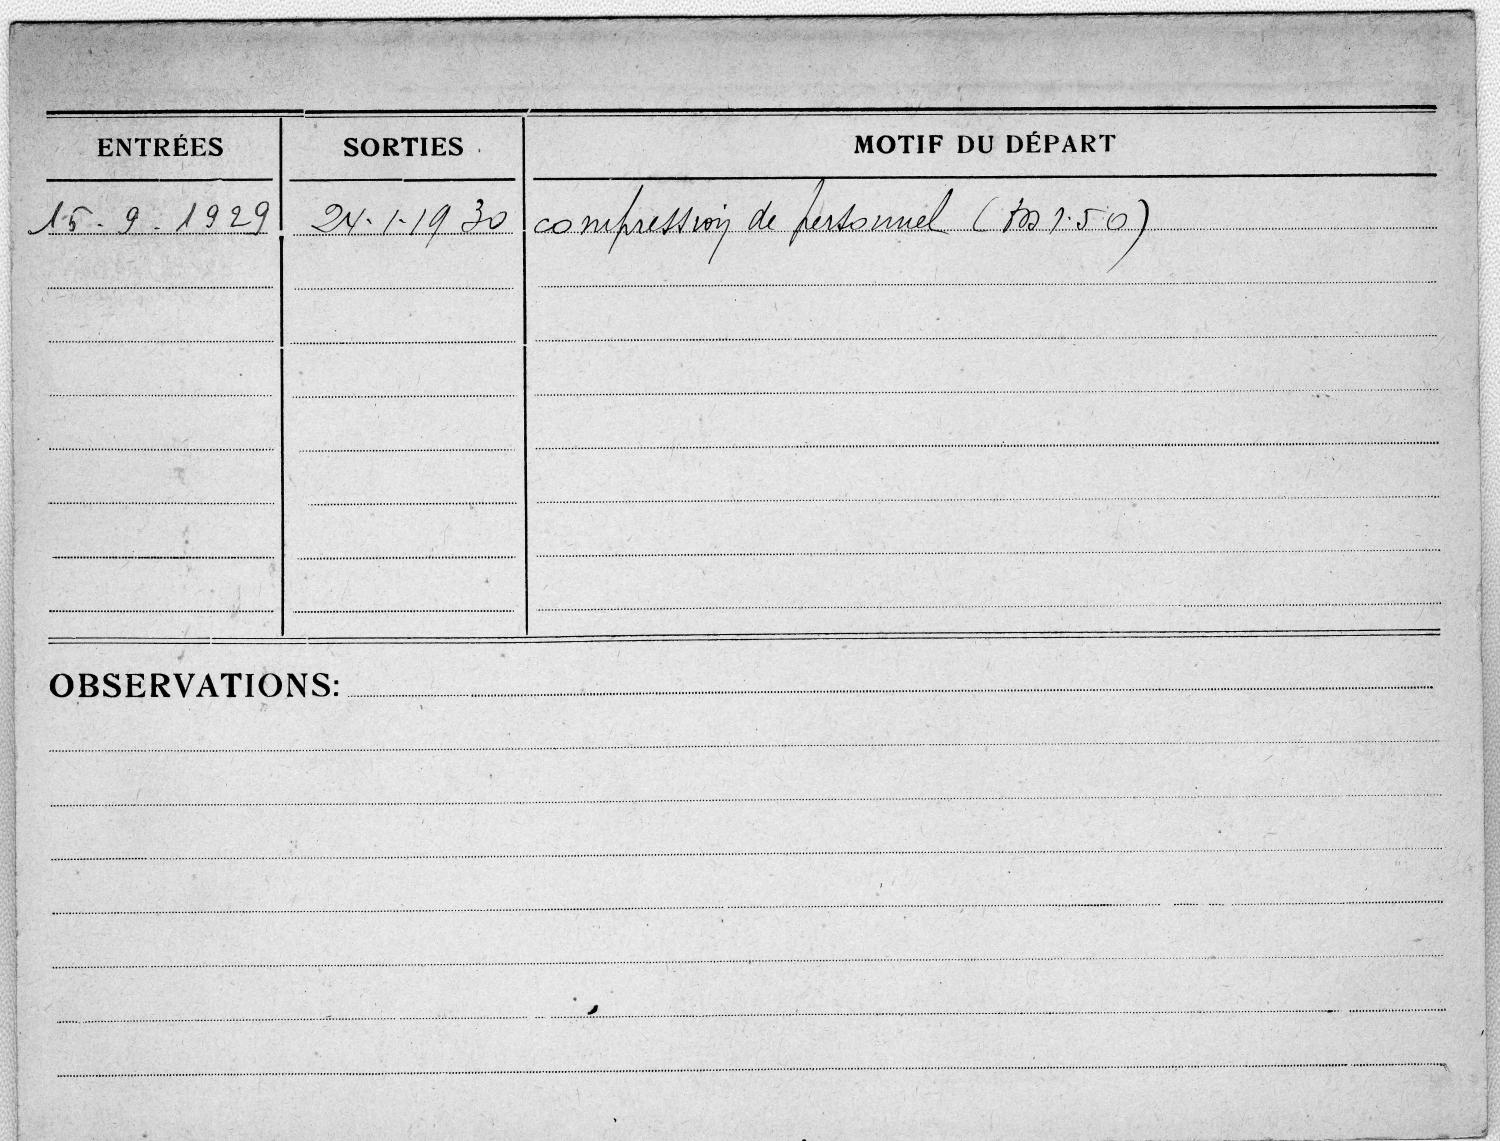 ENTRÉES SORTIES MOTIF DU DÉPART
15-9-1929 24-1-1930 compression de personnel (
OBSERVATIONS: